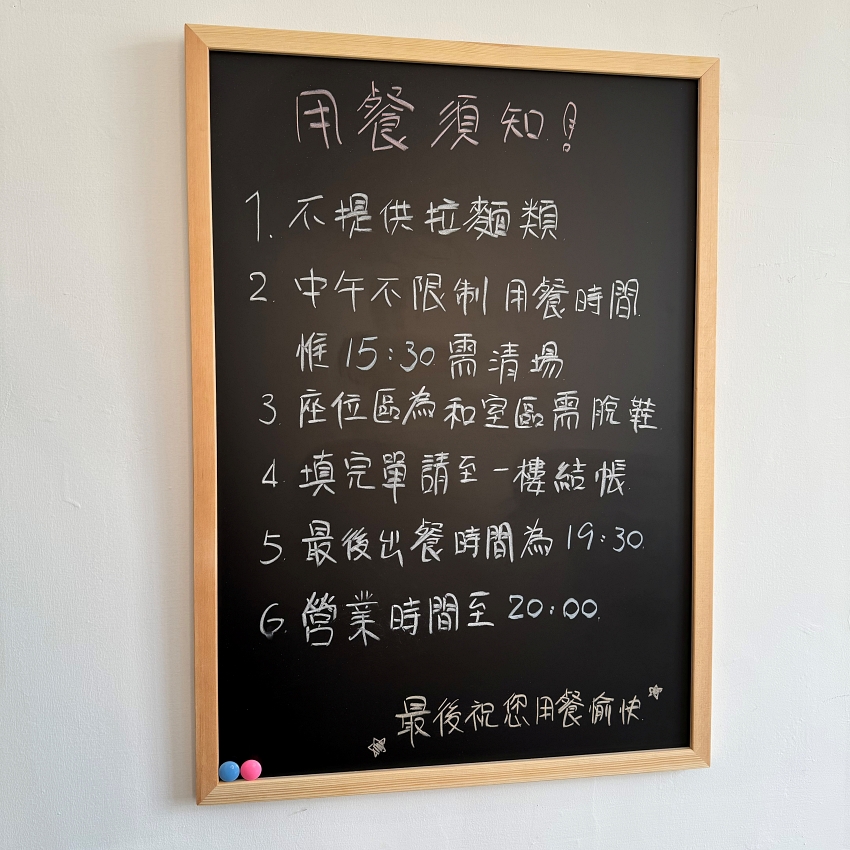 用餐須知!
1. 不提供拉麵類
2. 中午不限制用餐時間
惟15:30需清場
3. 座位區為和室區需脫鞋
4. 填完單請至一樓結帳
5. 最後出餐時間為19:30.
6. 營業時間至20:00.
最後祝您用餐愉快